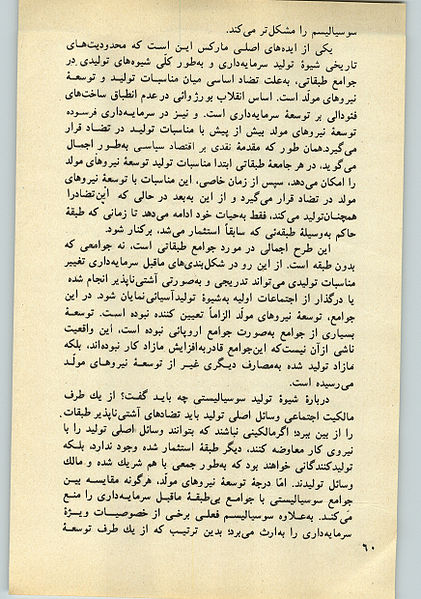 سوسیالیسم را مشکل‌تر می‌کند.
یکی از ایده‌های اصلی مارکس این است که محدودیت‌های
تاریخی شیوهٔ تولید سرمایه‌داری و به‌طور کلّی شیوه‌های تولیدی در
جوامع طبقاتی، به‌علت تضاد اساسی میان مناسبات تولید و توسعهٔ
نیروهای مولّد است. اساس انقلاب بورژوائی در عدم انطباق ساخت‌های
فئودالی بر توسعهٔ سرمایه‌داری است. و نیز در سرمایه‌داری فرسوده
توسعهٔ نیروهای مولد بیش از پیش با مناسبات تولید در تضاد قرار
می‌گیرد. همان طور که مقدمهٔ نقدی بر اقتصاد سیاسی به‌طور اجمال
می‌گوید، در هر جامعهٔ طبقاتی ابتدا مناسبات تولید توسعهٔ نیروهای مولد
را امکان می‌دهد، سپس از زمان خاصی، این مناسبات با توسعهٔ نیروهای
مولد در تضاد قرار می‌گیرد و از این به‌بعد در حالی که این تضاد را
همچنان تولید می‌کند، فقط به‌حیات خود ادامه می‌دهد تا زمانی که طبقهٔ
حاکم به‌وسیلهٔ طبقه‌ئی که سابقاً استثمار می‌شد، برکنار شود.
این طرح اجمالی در مورد جوامع طبقاتی است، نه جوامعی که
بدون طبقه است. از این رو در شکل‌بندی‌های ماقبل سرمایه‌داری تغییر
مناسبات تولیدی می‌تواند تدریجی و به‌صورتی آشتی‌ناپذیر انجام شده
یا درگذار از اجتماعات اولیه به‌شیوهٔ تولید آسیائی نمایان شود. در این
جوامع، توسعهٔ نیروهای مولّد الزاماً تعیین کننده نبوده است. توسعهٔ
بسیاری از جوامع به‌صورت جوامع اروپائی نبوده است، این واقعیت
ناشی از آن نیست که این جوامع قادر به‌افزایش مازاد کار نبوده‌اند، بلکه
مازاد تولید شده به‌مصارف دیگری غیر از توسعهٔ نیروهای مولّد
می‌رسیده است.
دربارهٔ شیوهٔ تولید سوسیالیستی چه باید گفت؟ از یك طرف
مالکیت اجتماعی وسائل اصلی تولید باید تضادهای آشتی‌ناپذیر طبقات
را از بین ببرد؛ اگر مالکینی نباشند که بتوانند وسائل اصلی تولید را با
نیروی کار معاوضه کنند، دیگر طبقهٔ استثمار شده وجود ندارد، بلکه
تولیدکنندگانی خواهند بود که به‌طور جمعی با هم شریك شده و مالك
وسائل تولیدند. امّا درجهٔ توسعهٔ نیروهای مولّد، هرگونه مقایسه بین
جوامع سوسیالیستی با جوامع بی‌طبقهٔ ماقبل سرمایه‌داری را منع
می‌کند. به‌علاوه سوسیالیسم فعلی برخی از خصوصیات ویژهٔ
سرمایه‌داری را به‌ارث می‌برد؛ بدین ترتیب که از یك طرف توسعهٔ
۶۰